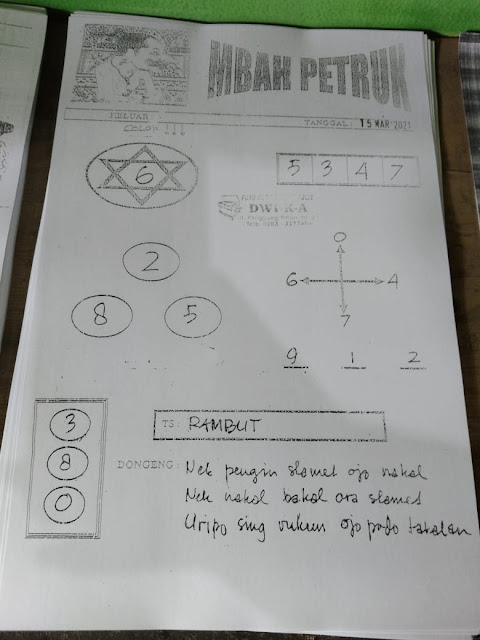 MBAH PETRUK
KELUAR
TANGGAL: 15 MAR 2021
COLOK !!!
6
5 3 4 7
DWI-K-A
2
8 5
0
6 4
7
9 1 2
3
8
0
TS: RAMBUT
DONGENG: Nek pengin slamet ojo nakal
Nek nakal bakal ora slamet
Uripo sing rukun ojo podo takalan